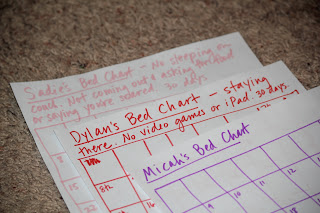 Sadie's Bed Chart - No sleeping on
couch. Not coming out & asking for iPad
or saying you're scared. 30 days.
Dylan's Bed Chart - staying
there. No video games or iPad. 30 days.
Micah's Bed Chart